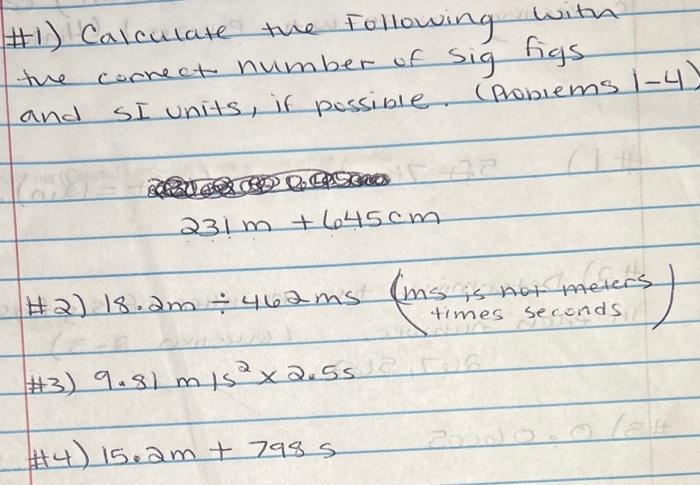 #1) Calculate the Following with
the correct number of sig figs
and SI units, if possible. (Problems 1-4)
231m + 645cm
#2) 18.2m ÷ 462ms (ms is not meters
times seconds)
#3) 9.81 m/s² x 2.5s
#4) 15.2m + 798 s